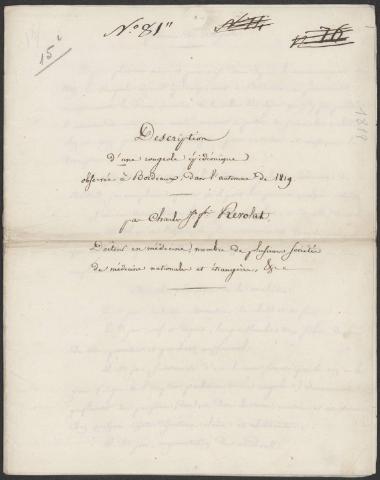 N.º 81"
N. 11.
n. 76
15
1819
Description
d'une rougeole épidémique
observée à Bordeaux, dans l'automne de 1819
par Charles Jph Revolat,
Docteur en médecine, membre de plusieurs sociétés
de médecine nationales et étrangères, &c